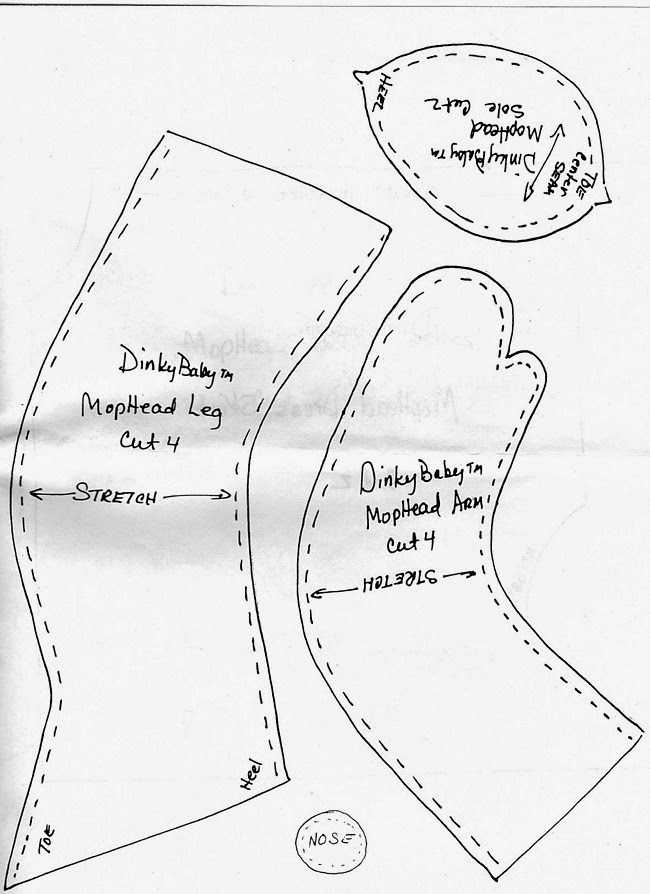 HEEL
DinkyBaby™
MopHead
Sole Cut 2
TOE
Center
SEAM
DinkyBaby™
MopHead Leg
Cut 4
STRETCH
DinkyBaby™
MopHead ARM
Cut 4
STRETCH
Heel
TOE
NOSE